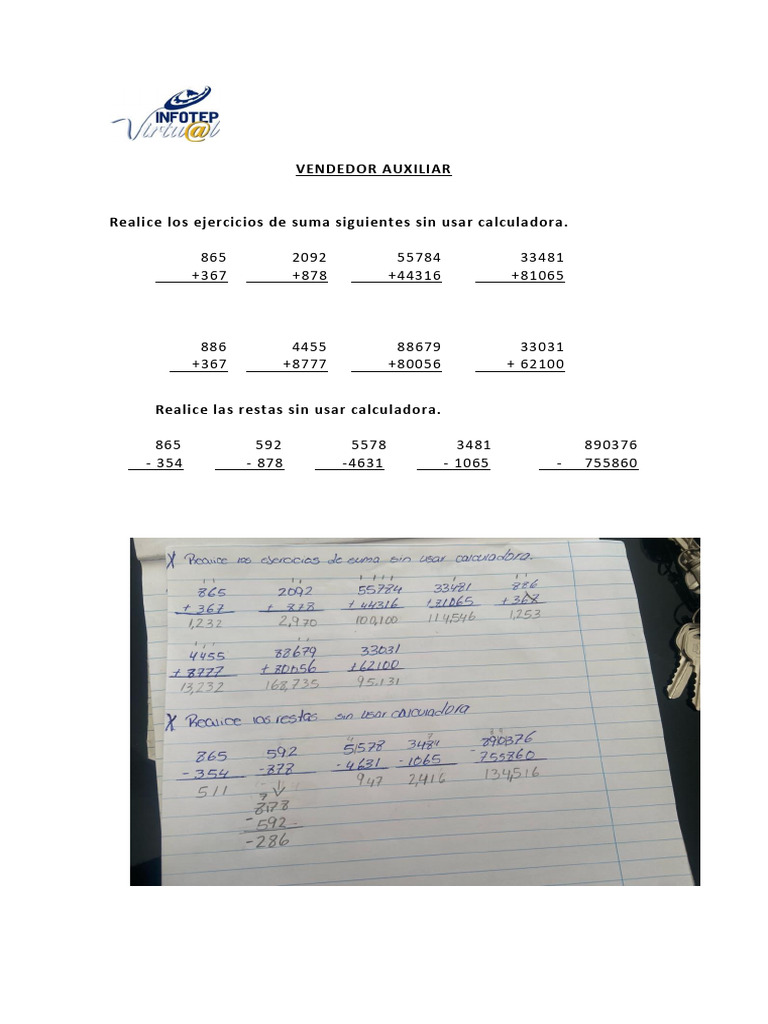 INFOTEP
Virtu@l
VENDEDOR AUXILIAR
Realice los ejercicios de suma siguientes sin usar calculadora.
865 2092 55784 33481
+367 +878 +44316 +81065
886 4455 88679 33031
+367 +8777 +80056 + 62100
Realice las restas sin usar calculadora.
865 592 5578 3481 890376
- 354 - 878 -4631 - 1065 - 755860
X Realice los ejercicios de suma sin usar calculadora.
865 2092 55784 33481 886
+ 367 + 878 + 44316 +81065 + 367
1,232 2,970 100,100 114,546 1,253
4455 88679 33031
+ 8777 + 80056 +62100
13,232 168,735 95.131
X Realice las restas sin usar calculadora
865 592 5578 3481 890376
- 354 -878 - 4631 - 1065 - 755860
511 947 2,416 134,516
878
- 592
- 286